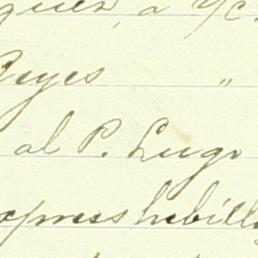 guez, a y/c.
Reyes "
al P. Lugo
xpress hebilla